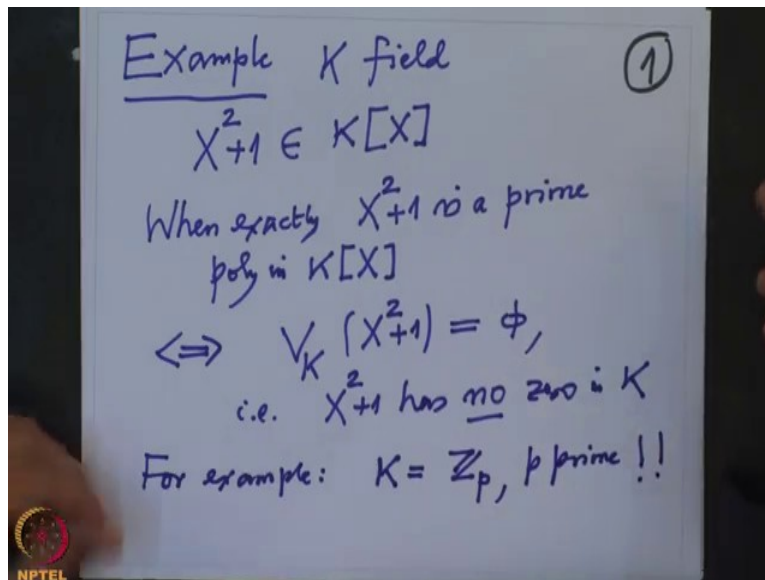 Example K field
①
X²+1 ∈ K[X]
When exactly X²+1 is a prime
poly in K[X]
⇔ V_K (X²+1) = ϕ,
i.e. X²+1 has no zero in K
For example: K = ℤ_p, p prime !!
NPTEL